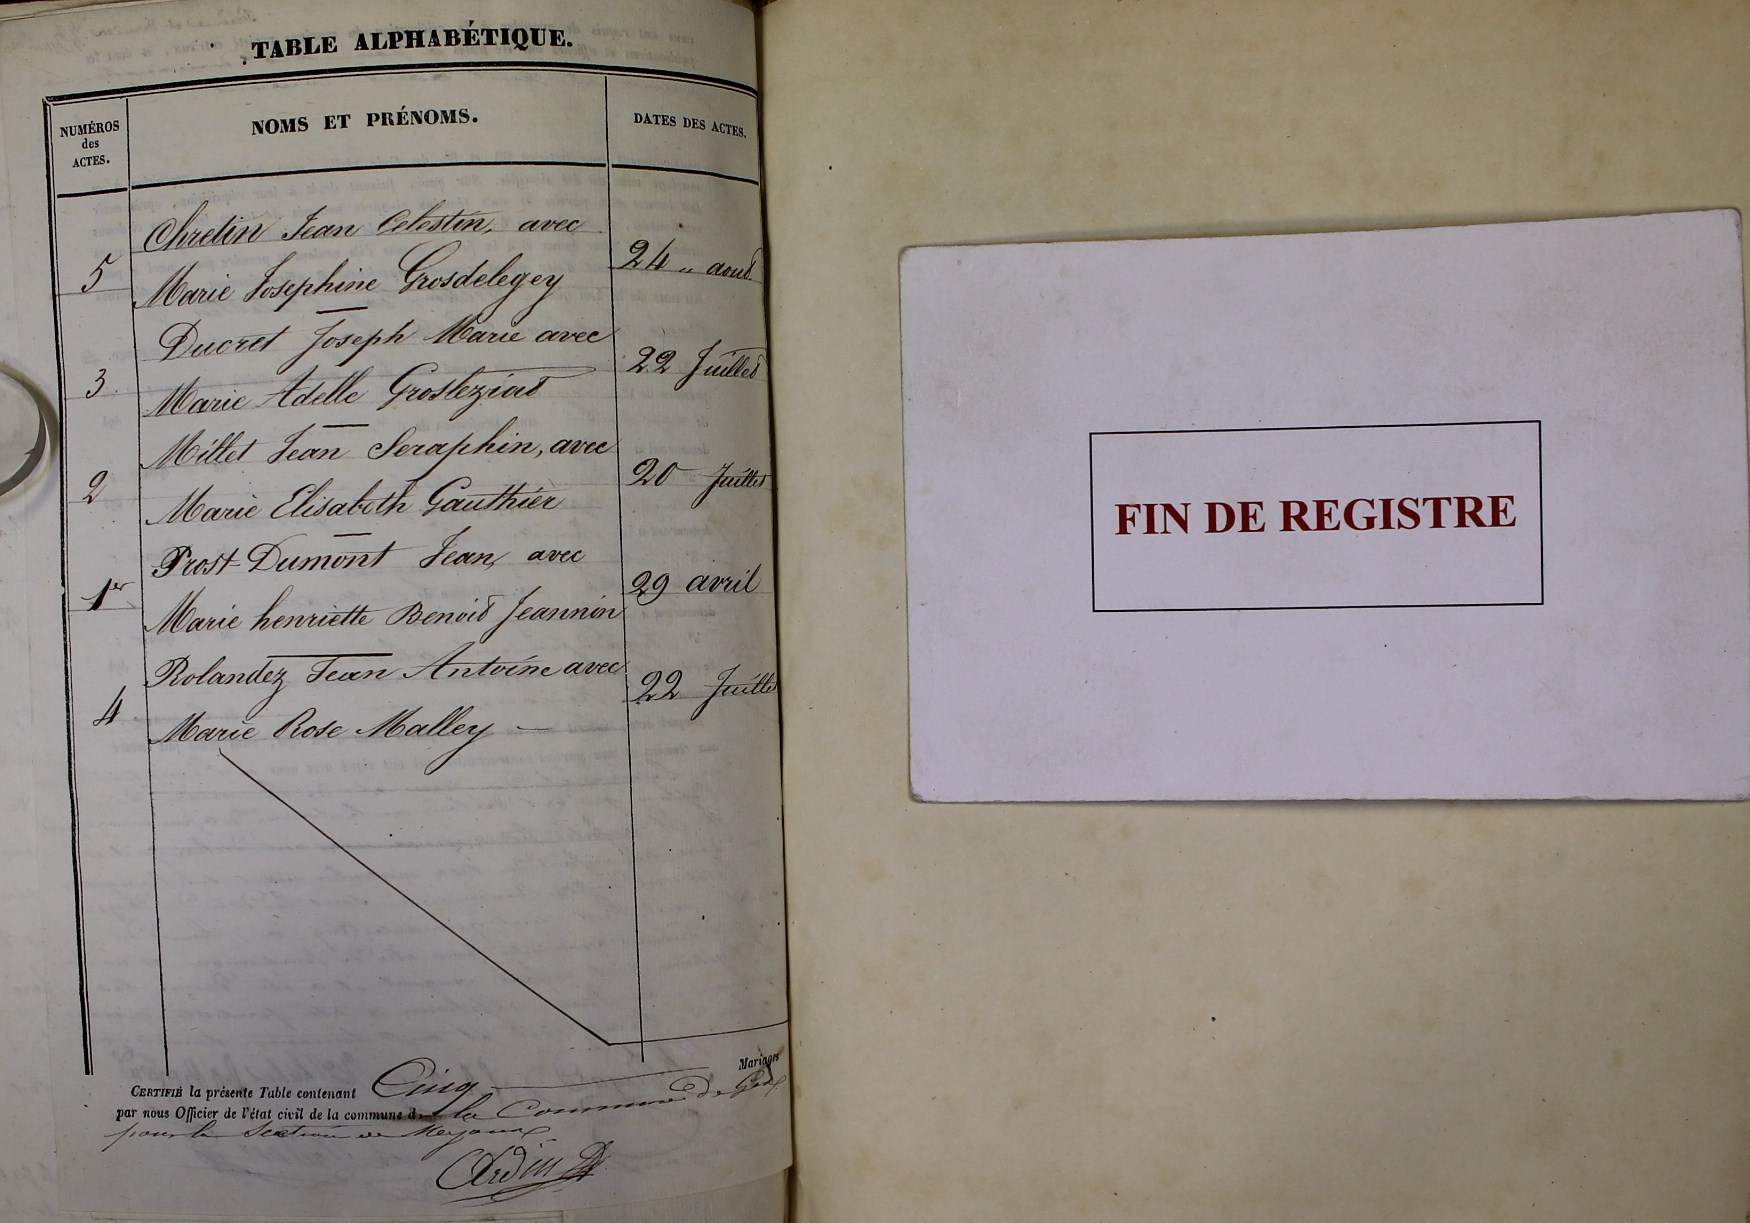 TABLE ALPHABÉTIQUE.
NUMÉROS
des
ACTES.
NOMS ET PRÉNOMS.
DATES DES ACTES.
Chretin Jean Celestin, avec
5 Marie Josephine Grosdelegey 24 „ aout
Ducret Joseph Marie avec
3 Marie Adelle Grosleziat 22 Juillet
Millet Jean Seraphin, avec
2 Marie Elisabeth Gauthier 20 Juillet
Prost Dumont Jean, avec
1er Marie henriette Benoit Jeannin 29 avril
Rolandez Jean Antoine avec
4 Marie Rose Malley 22 Juillet
CERTIFIÉ la présente Table contenant Cinq Mariages
par nous Officier de l'état civil de la commune de la Commune de Gex
pour la Section de
FIN DE REGISTRE